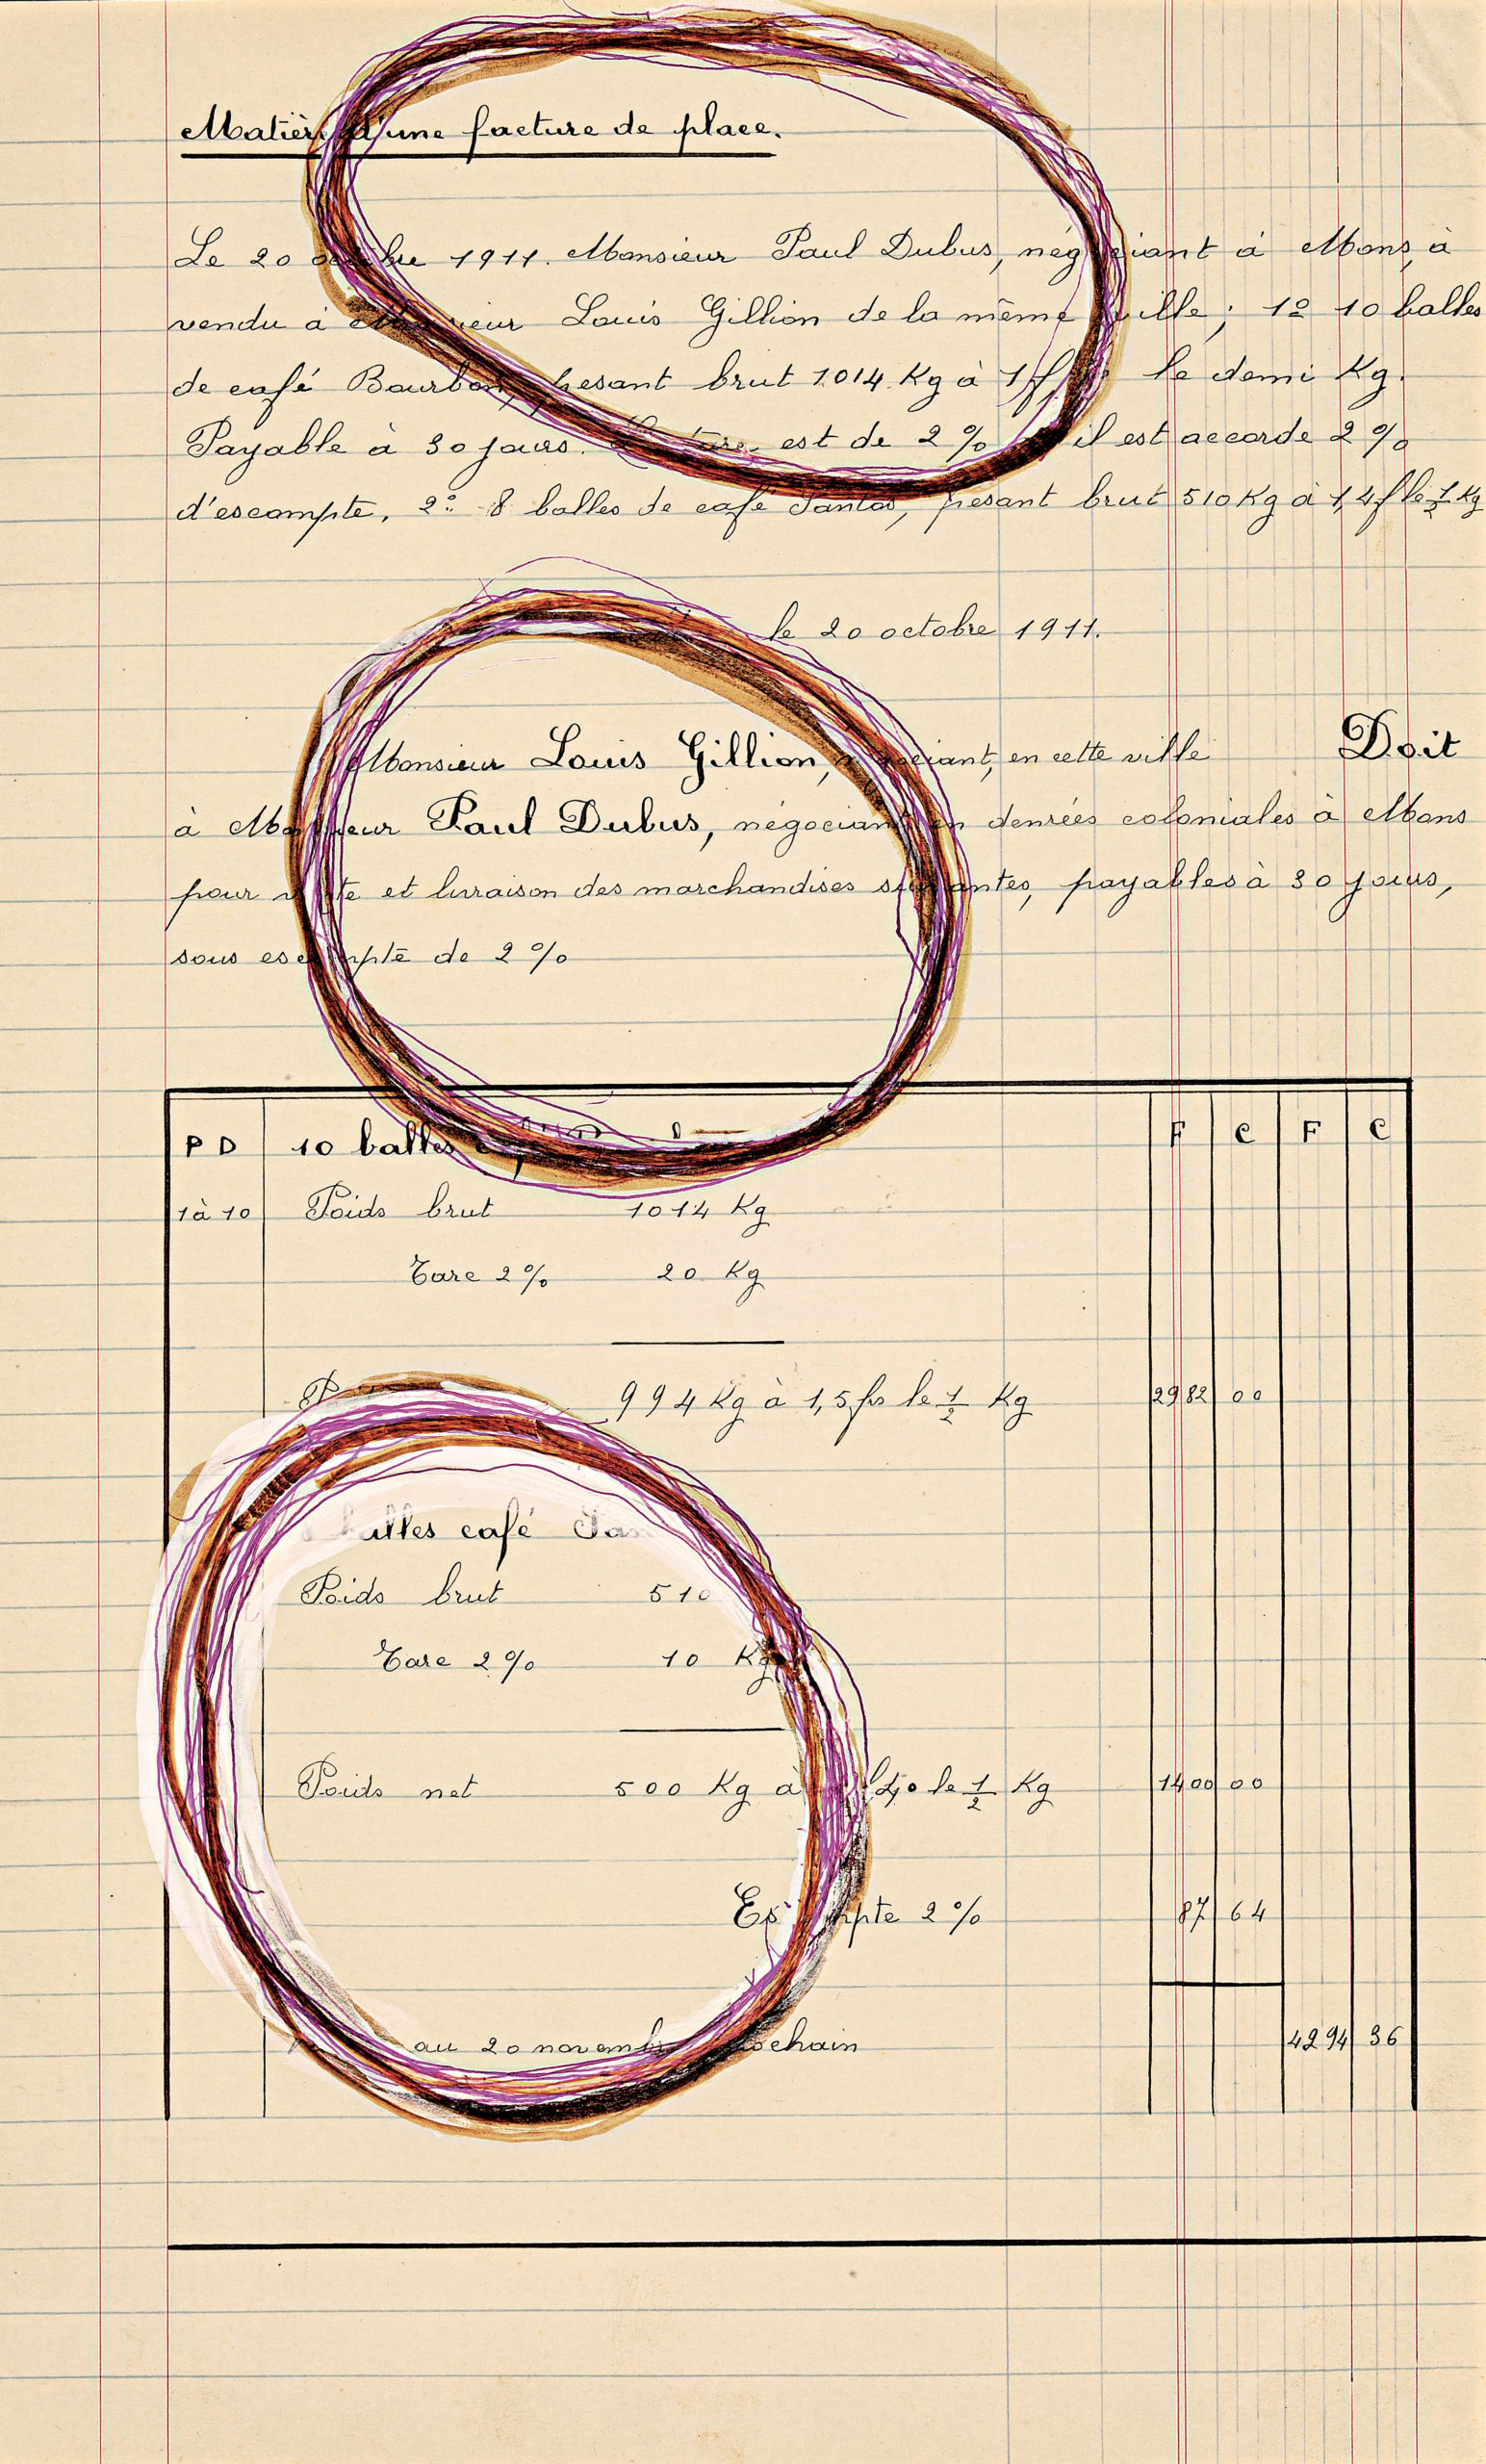 Matière d'une facture de place.
Le 20 octobre 1911. Monsieur Paul Dubus, négociant à Mons, à
vendu à Monsieur Louis Gillion de la même ville ; 1º 10 balles
de café Bourbon, pesant brut 1.014 Kg à le demi Kg.
Payable à 30 jours. est de 2 % il est accordé 2 %
d'escompte. 2º 8 balles de café Santos, pesant brut 510 Kg à 1,4 f le ½ Kg
le 20 octobre 1911.
Monsieur Louis Gillion, négociant, en cette ville Doit
à Monsieur Paul Dubus, négociant en denrées coloniales à Mons
pour vente et livraison des marchandises suivantes, payables à 30 jours,
sous escompte de 2 %
P D 10 balles F C F C
1 à 10 Poids brut 1014 Kg
Tare 2 % 20 Kg
994 Kg à 1,5 frs le ½ Kg 2982 00
balles café
Poids brut 510
Tare 2 % 10 Kg
Poids net 500 Kg à le ½ Kg 1400 00
Escompte 2 % 87 64
au 20 novembre prochain 4294 36